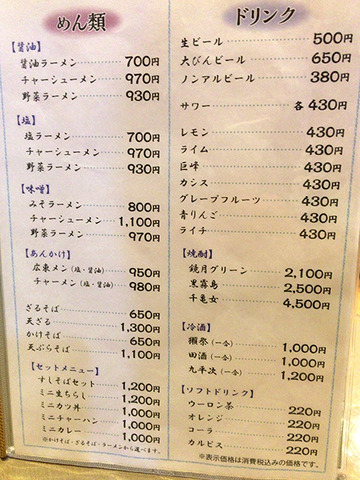 めん類
【醤油】
醤油ラーメン 700円
チャーシューメン 970円
野菜ラーメン 930円
【塩】
塩ラーメン 700円
チャーシューメン 970円
野菜ラーメン 930円
【味噌】
みそラーメン 800円
チャーシューメン 1,100円
野菜ラーメン 970円
【あんかけ】
広東メン(塩・醤油) 950円
チャーメン(塩・醤油) 980円
ざるそば 650円
天ざる 1,300円
かけそば 650円
天ぷらそば 1,100円
【セットメニュー】
すしそばセット 1,200円
ミニ生ちらし 1,200円
ミニカツ丼 1,000円
ミニチャーハン 1,000円
ミニカレー 1,000円
※かけそば・ざるそば・ラーメンから選べます。
ドリンク
生ビール 500円
大びんビール 650円
ノンアルビール 380円
サワー 各430円
レモン 430円
ライム 430円
巨峰 430円
カシス 430円
グレープフルーツ 430円
青りんご 430円
ライチ 430円
【焼酎】
鏡月グリーン 2,100円
黒霧島 2,500円
千亀女 4,500円
【冷酒】
獺祭(一合) 1,000円
田酒(一合) 1,000円
九平次(一合) 1,200円
【ソフトドリンク】
ウーロン茶 220円
オレンジ 220円
コーラ 220円
カルピス 220円
※表示価格は消費税込みの価格です。